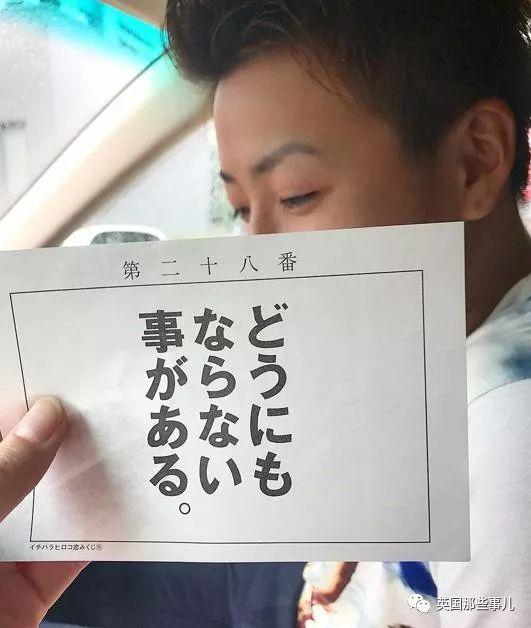 第二十八番
どうにも
ならない
事がある。
イチハラヒロコ恋みくじ
英国那些事儿